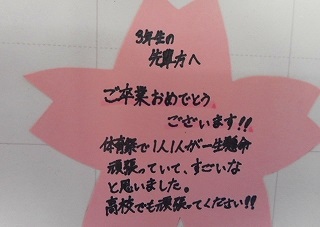 3年生の
先輩方へ
ご卒業おめでとう
ございます!!
体育祭で1人1人が一生懸命
頑張っていて、すごいな
と思いました。
高校でも頑張ってください!!